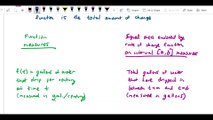 function is the total amount of change
Function
measures
Equal area enclosed by
rate of change function
on interval [a,b] measures
f(t) = gallons of water
that drip per
at time t
(measured in gal/
Total gallons of water
that have dripped in
between t=a and t=b
(measured in gallons)